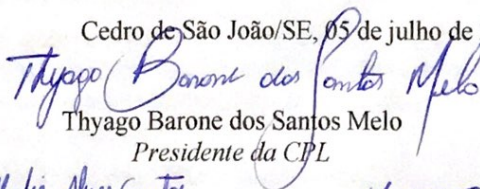 Cedro de São João/SE, 05 de julho de
Thyago Barone dos Santos Melo
Thyago Barone dos Santos Melo
Presidente da CPL